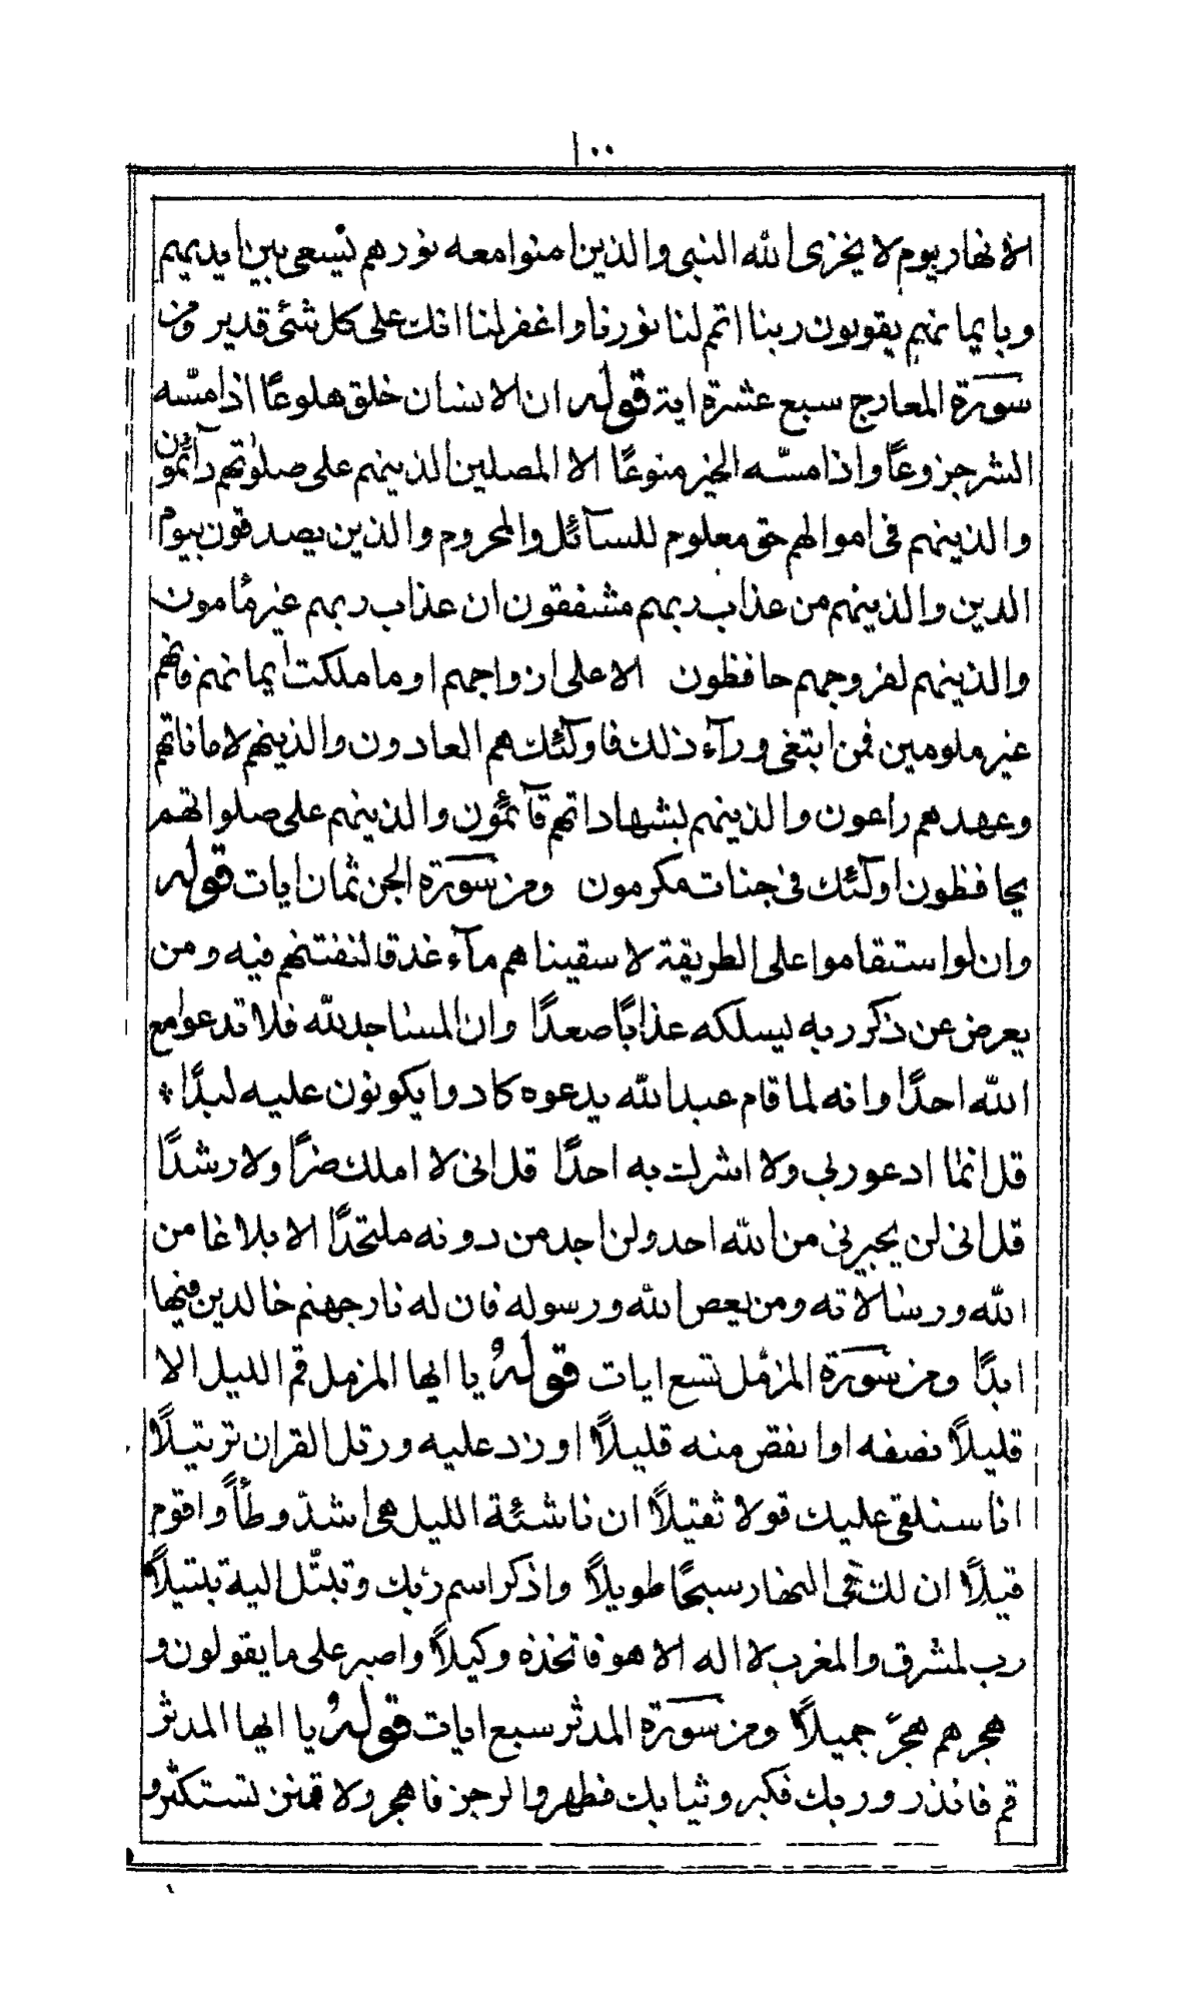 ١٠٠
الانهار يوم لا يخزى الله النبى والذين امنوا معه نورهم يسعى بين ايديهم
وبايمانهم يقولون ربنا اتمم لنا نورنا واغفر لنا انك على كل شئ قدير ومن
سورة المعارج سبع عشرة اية قوله ان الانسان خلق هلوعًا اذا مسّه
الشر جزوعًا واذا مسّه الخير منوعًا الا المصلين الذينهم على صلوتهم دآئمون
والذينهم فى اموالهم حق معلوم للسآئل والمحروم والذين يصدقون بيوم
الدين والذينهم من عذاب ربهم مشفقون ان عذاب ربهم غير مأمون
والذينهم لفروجهم حافظون الا على ازواجهم او ما ملكت ايمانهم فانهم
غير ملومين فمن ابتغى ورآء ذلك فاولئك هم العادون والذينهم لاماناتهم
وعهدهم راعون والذينهم بشهاداتهم قآئمون والذينهم على صلواتهم
يحافظون اولئك فى جنات مكرمون ومن سورة الجن ثمان ايات قوله
وان لو استقاموا على الطريقة لاسقيناهم مآء غدقا لنفتنهم فيه ومن
يعرض عن ذكر ربه يسلكه عذابًا صعدًا وان المساجد لله فلا تدعوا مع
الله احدًا وانه لما قام عبد الله يدعوه كادوا يكونون عليه لبدًا *
قل انما ادعو ربى ولا اشرك به احدًا قل انى لا املك ضرًا ولا رشدًا
قل انى لن يجيرنى من الله احد ولن اجد من دونه ملتحدًا الا بلاغا من
الله ورسالاته ومن يعص الله ورسوله فان له نار جهنم خالدين فيها
ابدًا ومن سورة المزمّل تسع ايات قوله يا ايها المزمل قم الليل الا
قليلاً نصفه او انقص منه قليلاً او زد عليه ورتل القران ترتيلاً
انا سنلقى عليك قولا ثقيلاً ان ناشئة الليل هى اشدّ وطأً واقوم
قيلاً ان لك فى النهار سبحًا طويلاً واذكر اسم ربك وتبتّل اليه تبتيلاً
رب لمشرق والمغرب لا اله الا هو فاتخذه وكيلاً واصبر على ما يقولون و
هجرهم هجرً جميلاً ومن سورة المدثر سبع ايات قوله يا ايها المدثر
قم فانذر وربك فكبر وثيابك فطهر والرجز فاهجر ولا تمنن تستكثر و